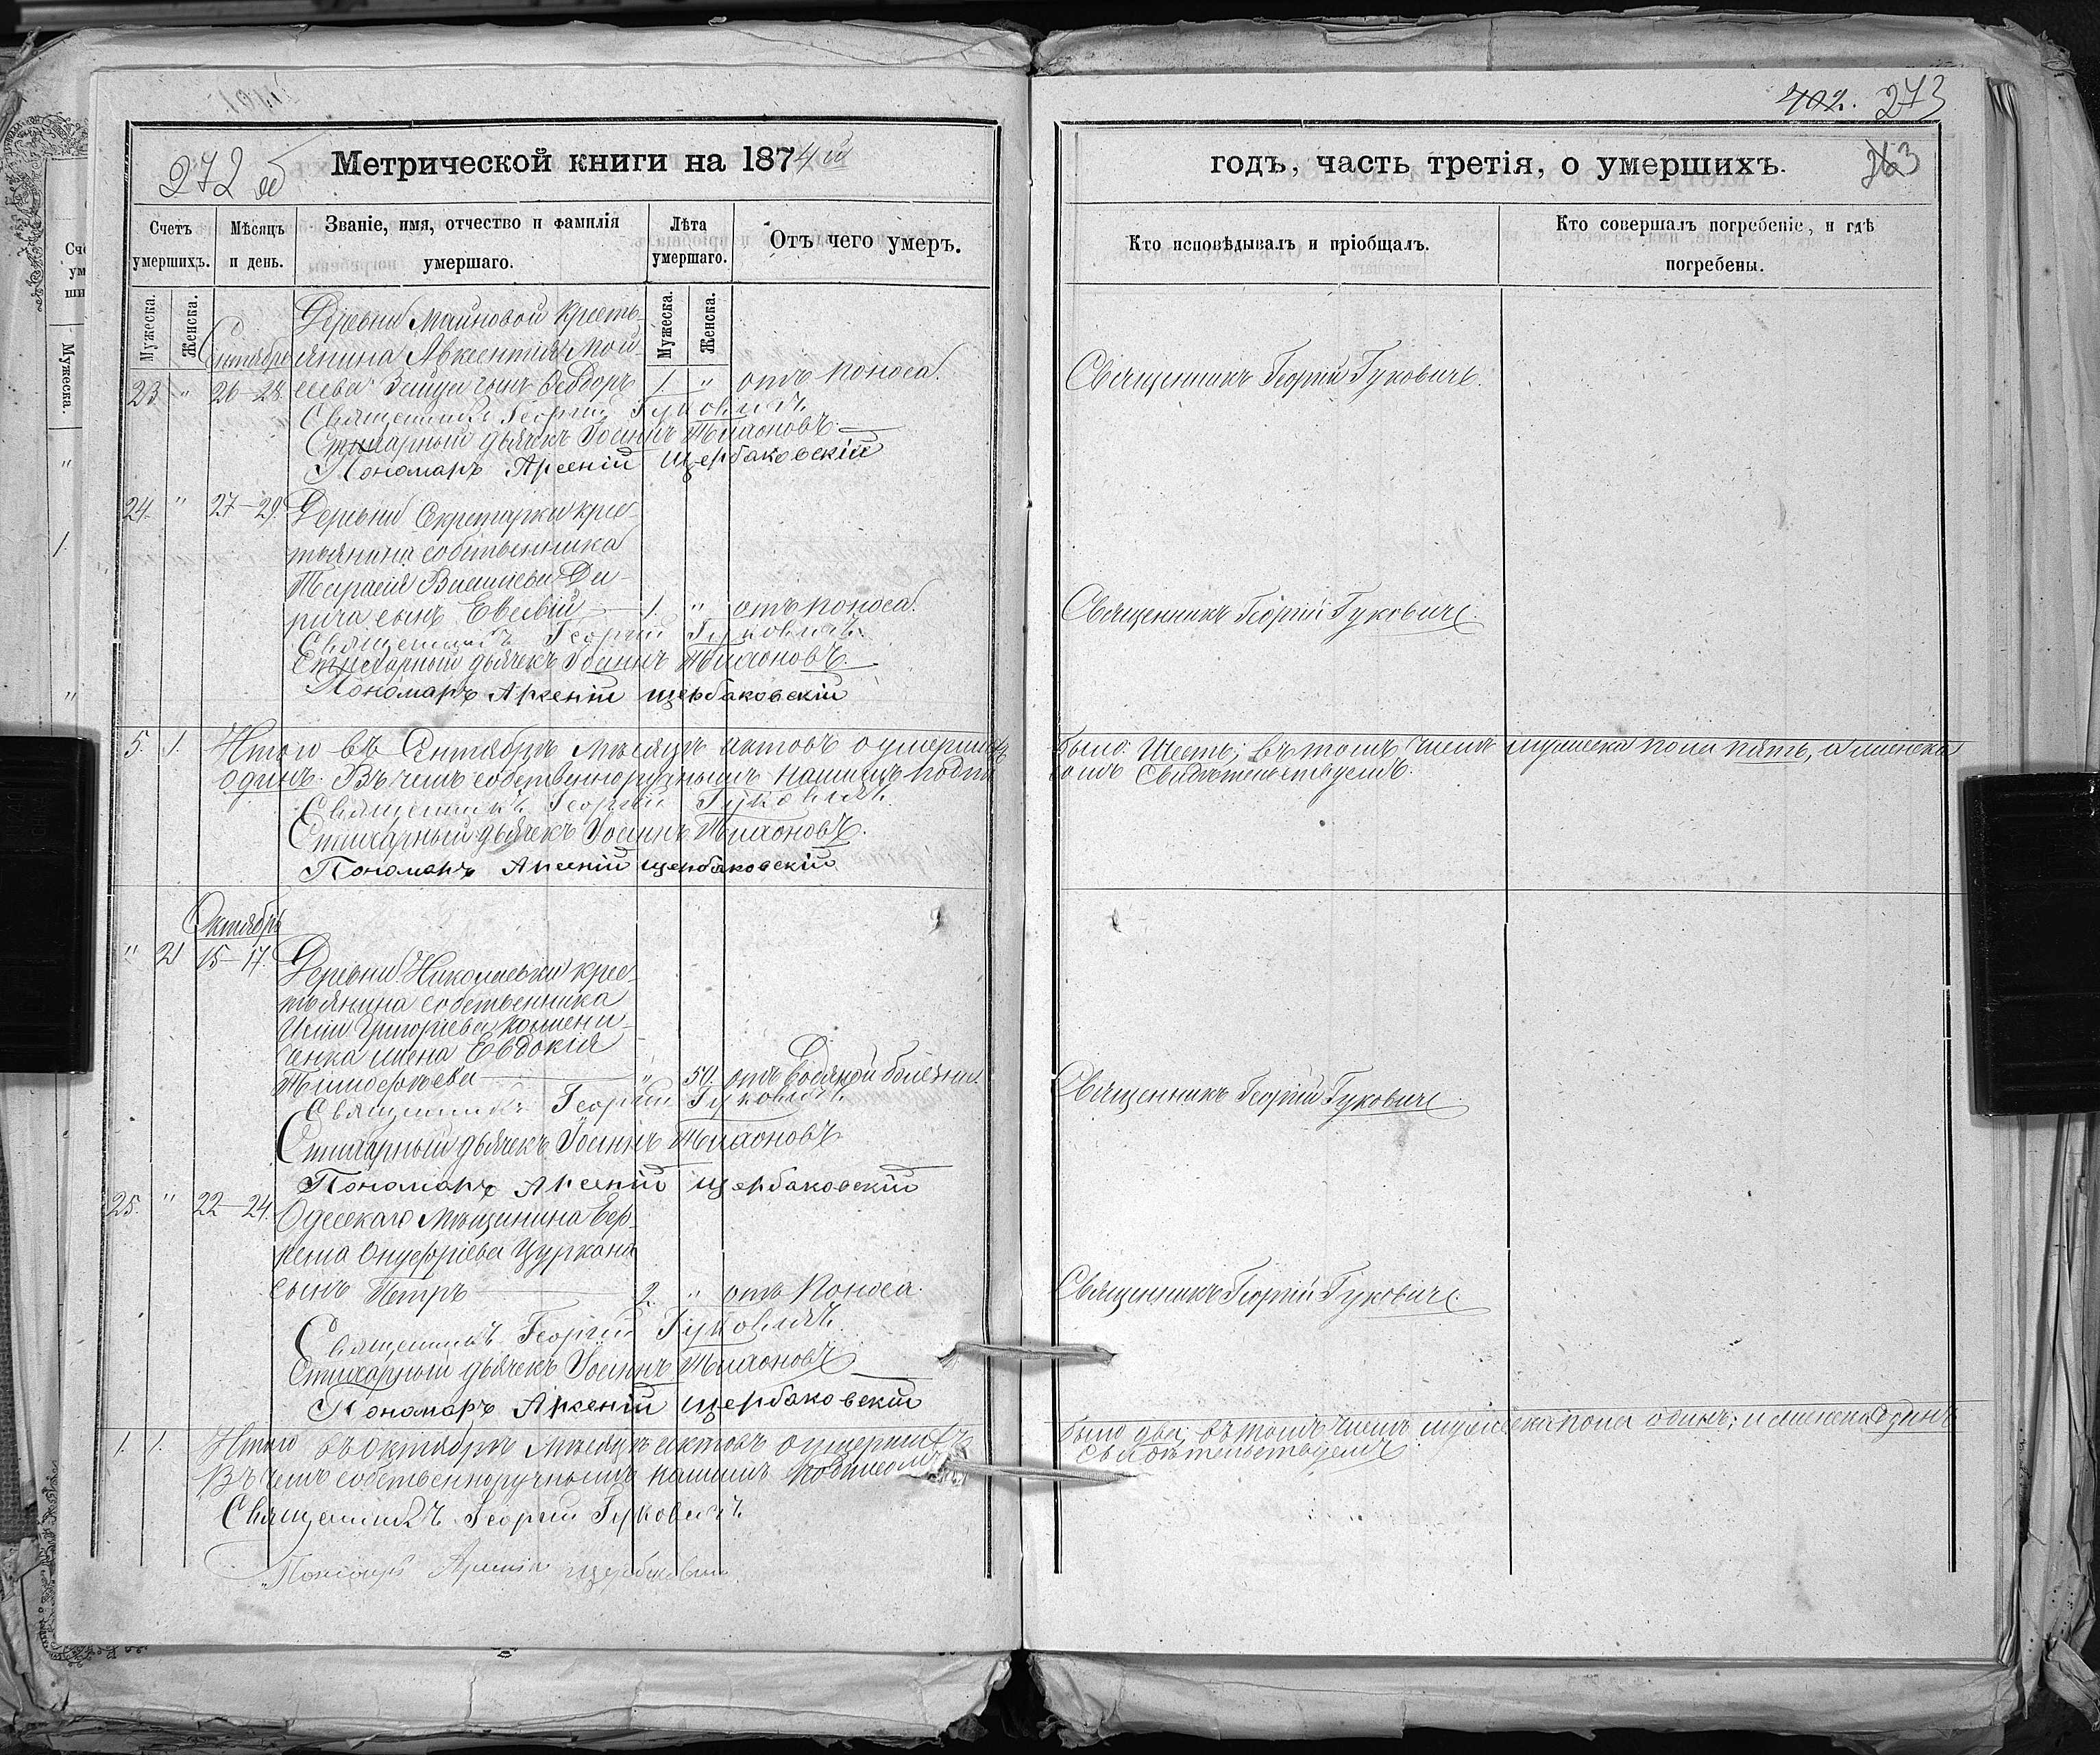 402. 273
272 об
Метрической книги на 1874 й
годъ, часть третія, о умершихъ.
263
Счетъ умершихъ.
Мѣсяцъ и день.
Званіе, имя, отчество и фамилія умершаго.
Лѣта умершаго.
Отъ чего умеръ.
Кто исповѣдывалъ и пріобщалъ.
Кто совершалъ погребеніе, и гдѣ погребены.
Мужеска.
Женска.
Мужеска.
Женска.
Сентябрь
Деревни Маиновой кресть-
янина Авксентія Мои-
23 " 26–28. сеева сынъ Ѳеодоръ 1. " отъ поноса.
Священникъ Георгій Гуковичъ.
Священникъ Георгій Гуковичъ
Стихарный дьячекъ Іоаннъ
Пономарь Арсеній Щербаковскій
24. " 27–29. Деревни Секретарки крес-
тьянина собственника
Тарасія
сынъ Евсевій 1. " отъ поноса.
Священникъ Георгій Гуковичъ.
Священникъ Георгій Гуковичъ
Стихарный дьячекъ Іоаннъ
Пономарь Арсеній Щербаковскій
5. 1. Итого въ Сентябрѣ мѣсяцѣ актовъ о умершихъ
было: шесть; въ томъ числѣ мужеска пола пять, а женска
одинъ. Въ чемъ собственноручнымъ нашимъ подпи
сомъ Свидѣтельствуемъ.
Священникъ Георгій Гуковичъ.
Стихарный дьячекъ Іоаннъ
Пономарь Арсеній Щербаковскій
Октябрь
" 2 15–17. Деревни Николаевки крес-
тьянина собственника
Григоріева
ченка жена Евдокія
Тимофѣева " 50. отъ водяной болѣзни.
Священникъ Георгій Гуковичъ.
Священникъ Георгій Гуковичъ
Стихарный дьячекъ Іоаннъ
Пономарь Арсеній Щербаковскій
25. " 22–24. Одесскаго Мѣщанина
Онуфріева Цуркана
сынъ Петръ 2. " отъ поноса.
Священникъ Георгій Гуковичъ.
Священникъ Георгій Гуковичъ.
Стихарный дьячекъ Іоаннъ
Пономарь Арсеній Щербаковскій
1. 1. Итого въ Октябрѣ мѣсяцѣ актовъ о умершихъ
было два; въ томъ числѣ мужеска пола одинъ; и женска одинъ
Въ чемъ собственноручнымъ нашимъ подписомъ
Свидѣтельствуемъ
Священникъ Георгій Гуковичъ
Пономарь Арсеній Щербаковскій